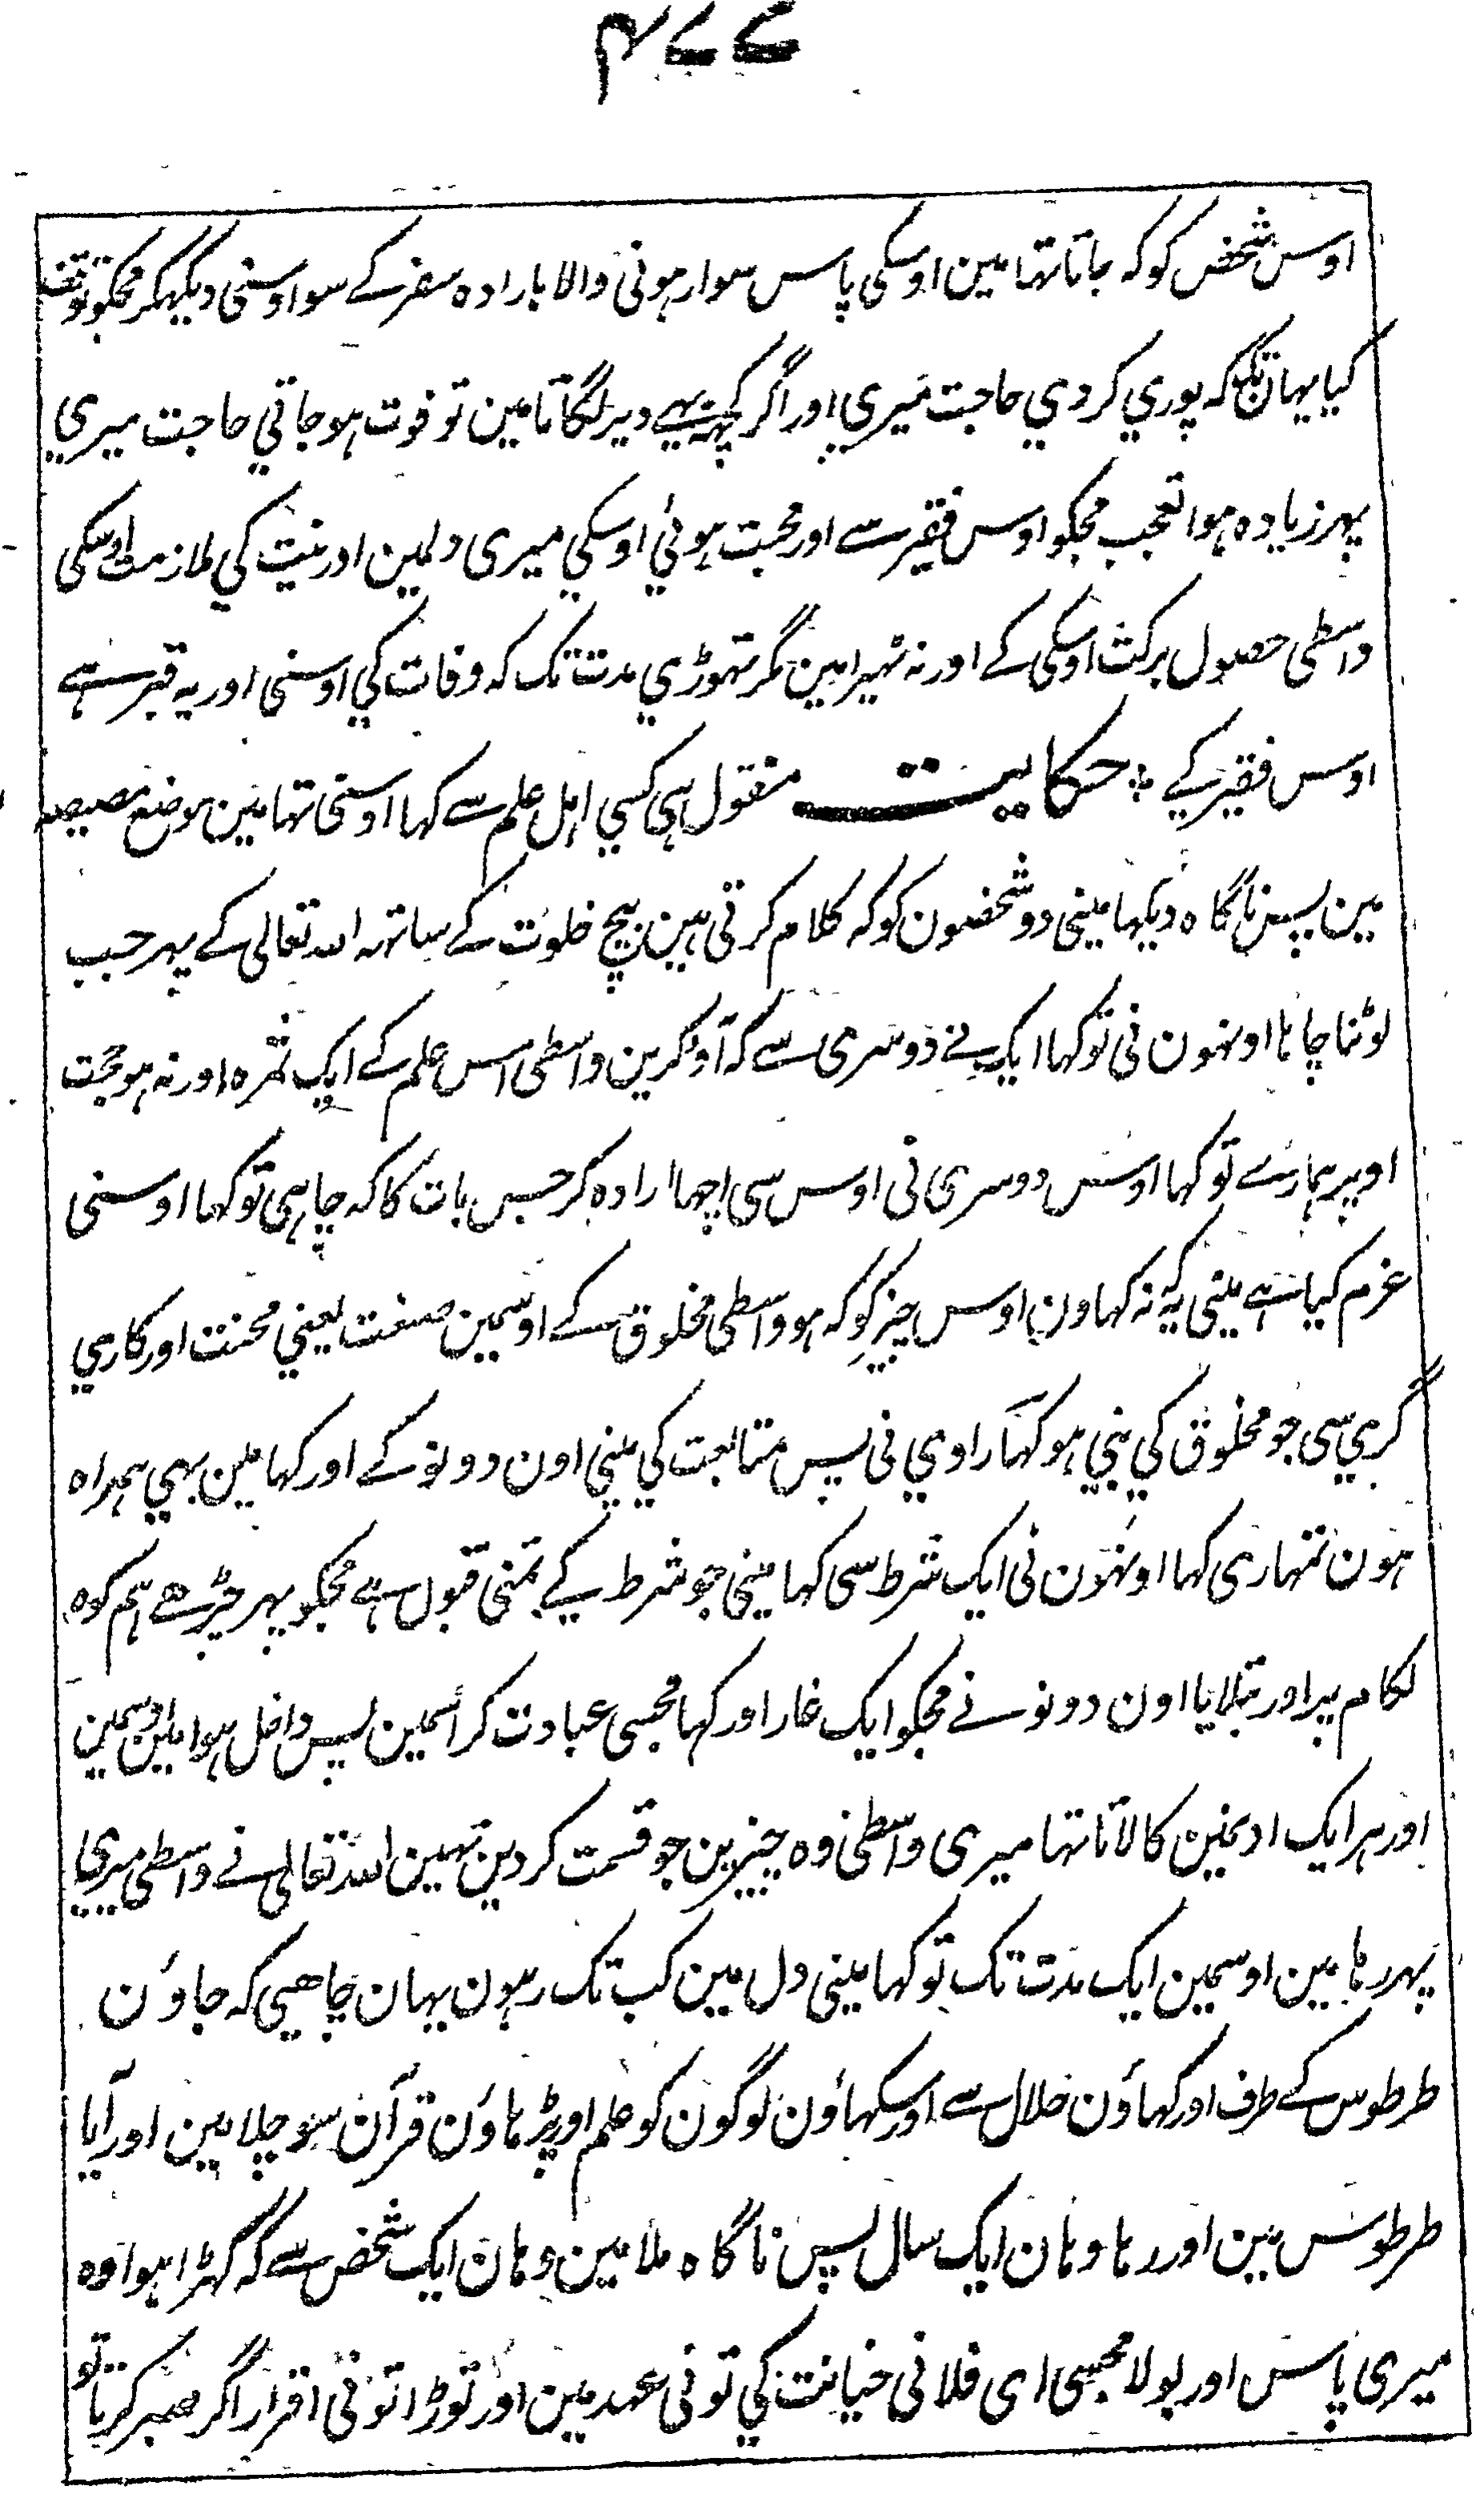 ۴۷۷
اوس شخص کو کہ جاتا تہا مین اوسکی پاس سوار ہونی والا بارادہ سفر کے سو اوسنی دیکہکر مجکو توقف
کیا یہان تک کہ پوري کردي حاجت میري اور اگر کچہہ بہے دیر لگاتا مین تو فوت ہو جاتي حاجت میري
پہر زیادہ ہوا تعجب مجکو اوس فقیر سے اور محبت ہوئي اوسکي میری دلمین اور نیت کي ملازمت اوسکی
واسطی حصول برکت اوسکی کے اور نہ ٹہیرا مین مگر تہوڑي مدت تک کہ وفات کي اوسنی اور یہ قبر ہے
اوس فقیر کے ؞ حکایت منقول ہی کسي اہل علم سے کہا اوسنی تہا مین موضع مصیصہ
مین پس ناگاہ دیکہا مینی دو شخصون کو کہ کلام کرتی ہین بیچ خلوت کے ساتہہ اللہ تعالی کے پہر جب
لوٹنا چاہا اونہون نی تو کہا ایک نے دوسری سے کہ آؤ کرین واسطی اس علم کے ایک ثمرہ اور نہ ہو حجت
اوپر ہمارے تو کہا اوس دوسری نی اوس سی اچہا ارادہ کر جس بات کا کہ چاہی تو کہا اوسنی
عزم کیا ہے مینی یہ کہ نہ کہاون اوس چیز کو کہ ہو واسطی مخلوق کے اوسمین صنعت یعني محنت اور کاري
گري سی جو مخلوق کي بني ہو کہا راوي نی پس متابعت کي مینی اون دونو کے اور کہا مین بہي ہمراہ
ہون تمہاری کہا اونہون نی ایک شرط سی کہا مینی جو شرط کے تمنی قبول ہے مجکو پہر چڑہے ہم کوہ
لکام پر اور بتلایا اون دونو نے مجکو ایک غار اور کہا مجسی عبادت کر اسمین پس داخل ہوا مین اوسمین
اور ہر ایک اونمین کا لاتا تہا میری واسطی وہ چیزین جو قسمت کردین تہین اللہ تعالی نے واسطی میري
پہر رہا مین اوسمین ایک مدت تک تو کہا مینی دل مین کب تک رہون یہان چاہیی کہ جاؤن
طرطوس کے طرف اور کہاؤن حلال سے اور سکہاؤن لوگون کو علم اور پڑہاؤن قرآن سو چلا مین اور آیا
طرطوس مین اور رہا وہان ایک سال پس ناگاہ ملا مین وہان ایک شخص سے کہ کہڑا ہوا وہ
میری پاس اور بولا مجسی ای فلانی خیانت کي تونی عہد مین اور توڑا تونی اقرار اگر صبر کرتا تو